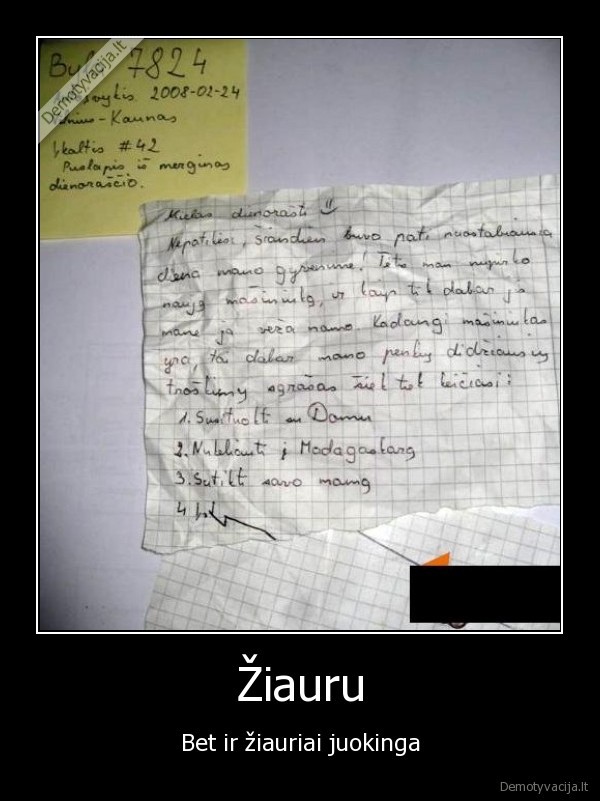 Demotyvacija.lt
7824
2008-02-24
Vilnius-Kaunas
Įkaltis #42
Puslapis iš merginos
dienoraščio.
Mielas dienorašti
Nepatikėsi, šiandien buvo pati nuostabiausia
diena mano gyvenime! Tėtis man nupirko
naują mašiniuką, ir kaip tik dabar jis
mane ja veža namo. Kadangi mašiniukas
yra, tai dabar mano penkių didžiausių
troškimų sąrašas šiek tiek keičiasi:
1. Susituokti su Domu
2. Nukeliauti į Madagaskarą
3. Sutikti savo mamą
4.
Žiauru
Bet ir žiauriai juokinga
Demotyvacija.lt